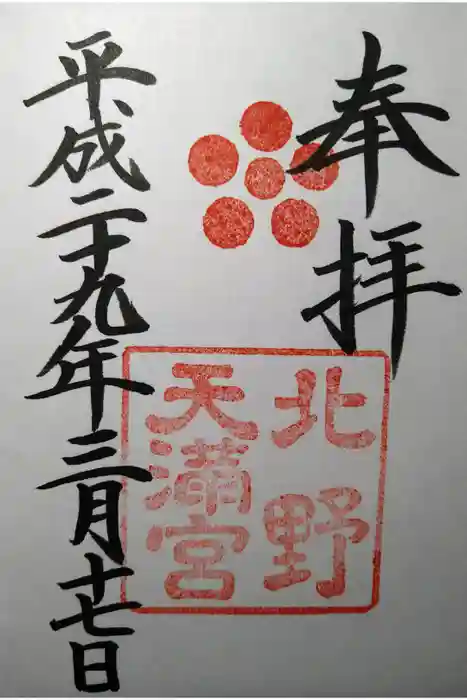 奉拝
北野
天満宮
平成二十九年三月十七日